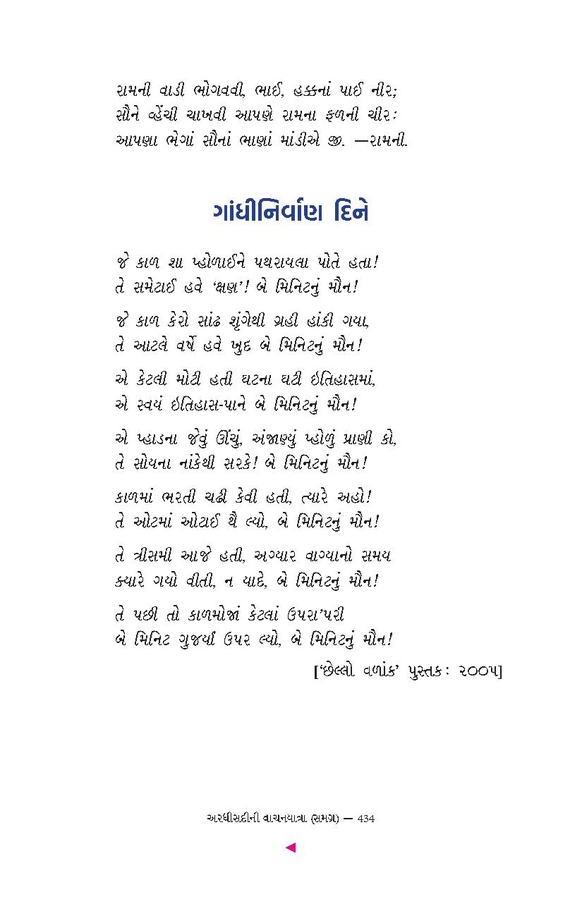 રામની વાડી ભોગવવી, ભાઈ, હક્કનાં પાઈ નીર;
સૌને વ્હેંચી ચાખવી આપણે રામના ફળની ચીરઃ
આપણા ભેગાં સૌનાં ભાણાં માંડીએ જી. —રામની.
ગાંધીનિર્વાણ દિને
જે કાળ શા પ્હોળાઈને પથરાયલા પોતે હતા!
તે સમેટાઈ હવે ‘ક્ષણ’! બે મિનિટનું મૌન!
જે કાળ કેરો સાંઢ શૃંગેથી ગ્રહી હાંકી ગયા,
તે આટલે વર્ષે હવે ખુદ બે મિનિટનું મૌન!
એ કેટલી મોટી હતી ઘટના ઘટી ઇતિહાસમાં,
એ સ્વયં ઇતિહાસ-પાને બે મિનિટનું મૌન!
એ પ્હાડના જેવું ઊંચું, અંજાણ્યું પ્હોળું પ્રાણી કો,
તે સોયના નાંકેથી સરકે! બે મિનિટનું મૌન!
કાળમાં ભરતી ચઢી કેવી હતી, ત્યારે અહો!
તે ઓટમાં ઓટાઈ થૈ લ્યો, બે મિનિટનું મૌન!
તે ત્રીસમી આજે હતી, અગ્યાર વાગ્યાનો સમય
ક્યારે ગયો વીતી, ન યાદે, બે મિનિટનું મૌન!
તે પછી તો કાળમોજાં કેટલાં ઉપરા’પરી
બે મિનિટ ગુજર્યા ઉપર લ્યો, બે મિનિટનું મૌન!
[‘છેલ્લો વળાંક’ પુસ્તકઃ ૨૦૦૫]
અરધીસદીની વાચનયાત્રા (સમગ્ર) — 434